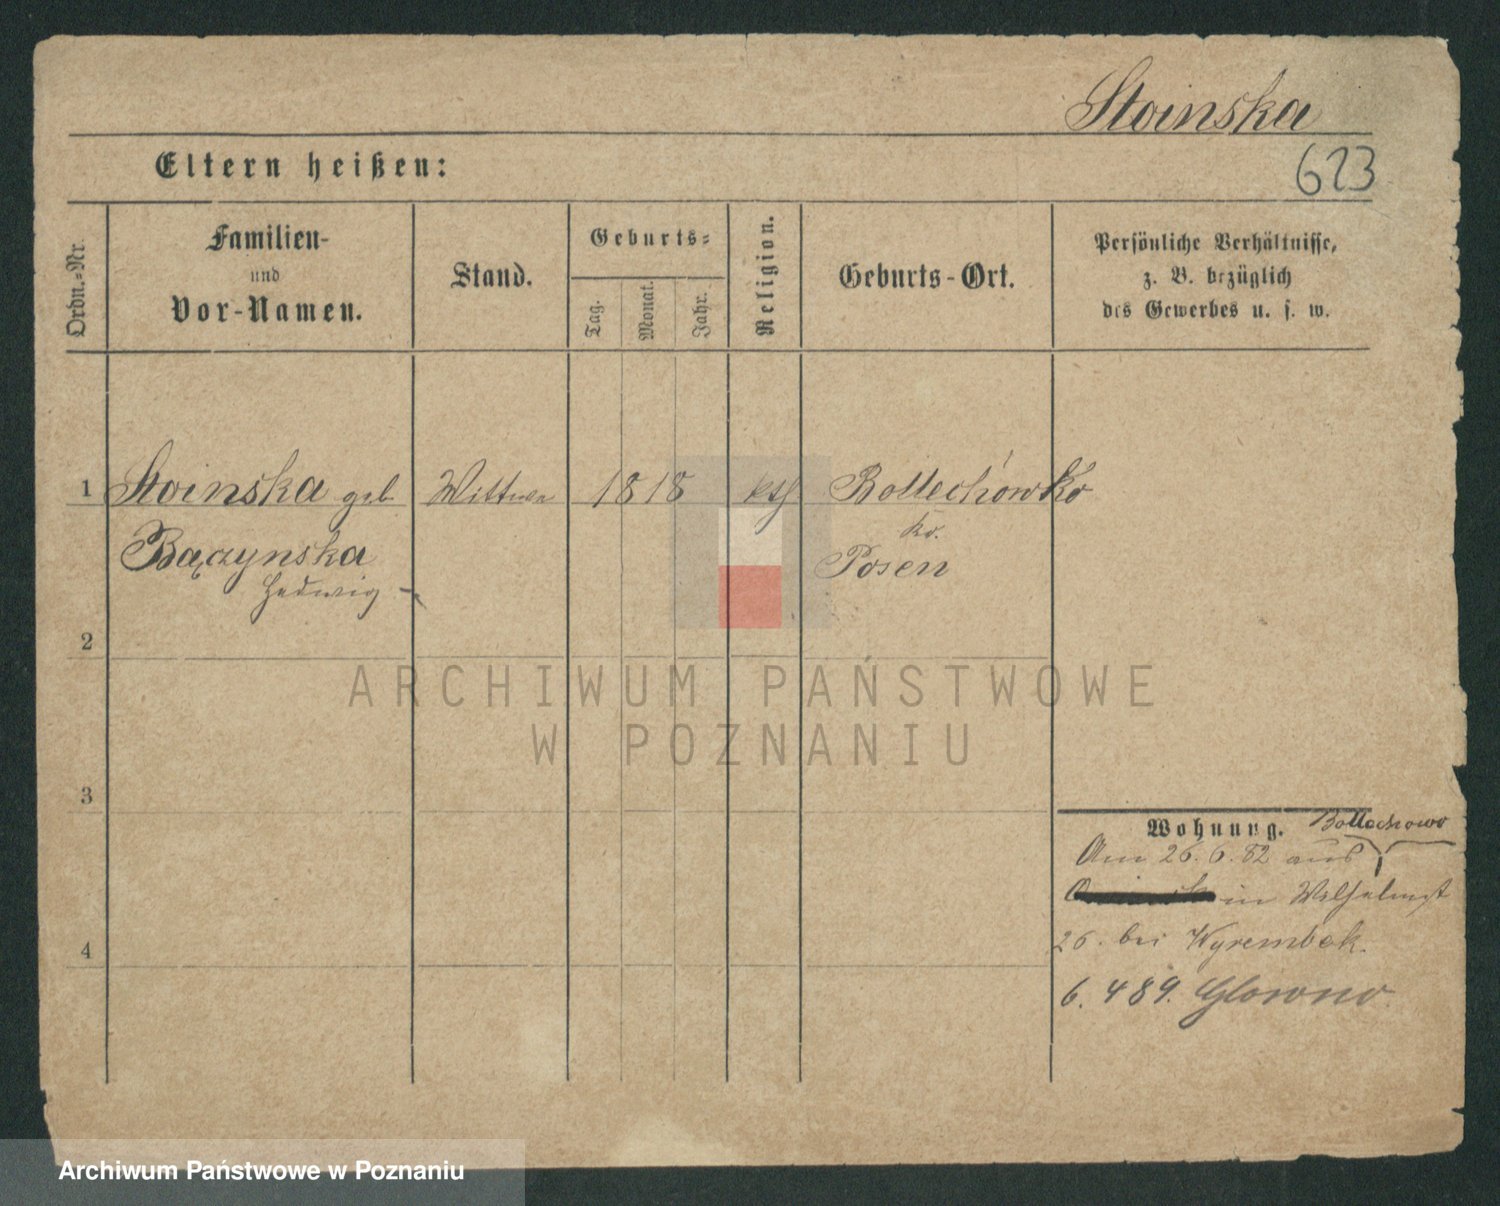 Stoinska
Eltern heißen:
623
Ordn.-Nr.
Familien-
und
Vor-Namen.
Stand.
Geburts-
Tag.
Monat.
Jahr.
Religion.
Geburts-Ort.
Persönliche Verhältnisse,
z. B. bezüglich
des Gewerbes u. s. w.
1 Stoinska geb Wittwe 1818 kth Bollechówko
Kr.
Bączynska Posen
Hedwig
2
ARCHIWUM PAŃSTWOWE
W POZNANIU
3
Wohnung. Bollechowo
Am 26.6.82 aus
in Wilhelmst
26. bei Wyrembek.
4
6. 4 89. Glowno
Archiwum Państwowe w Poznaniu